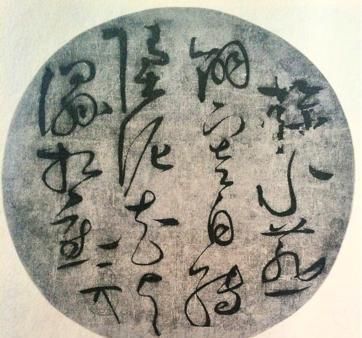 掠水燕
翎寒自轉
墮泥花片
濕相重